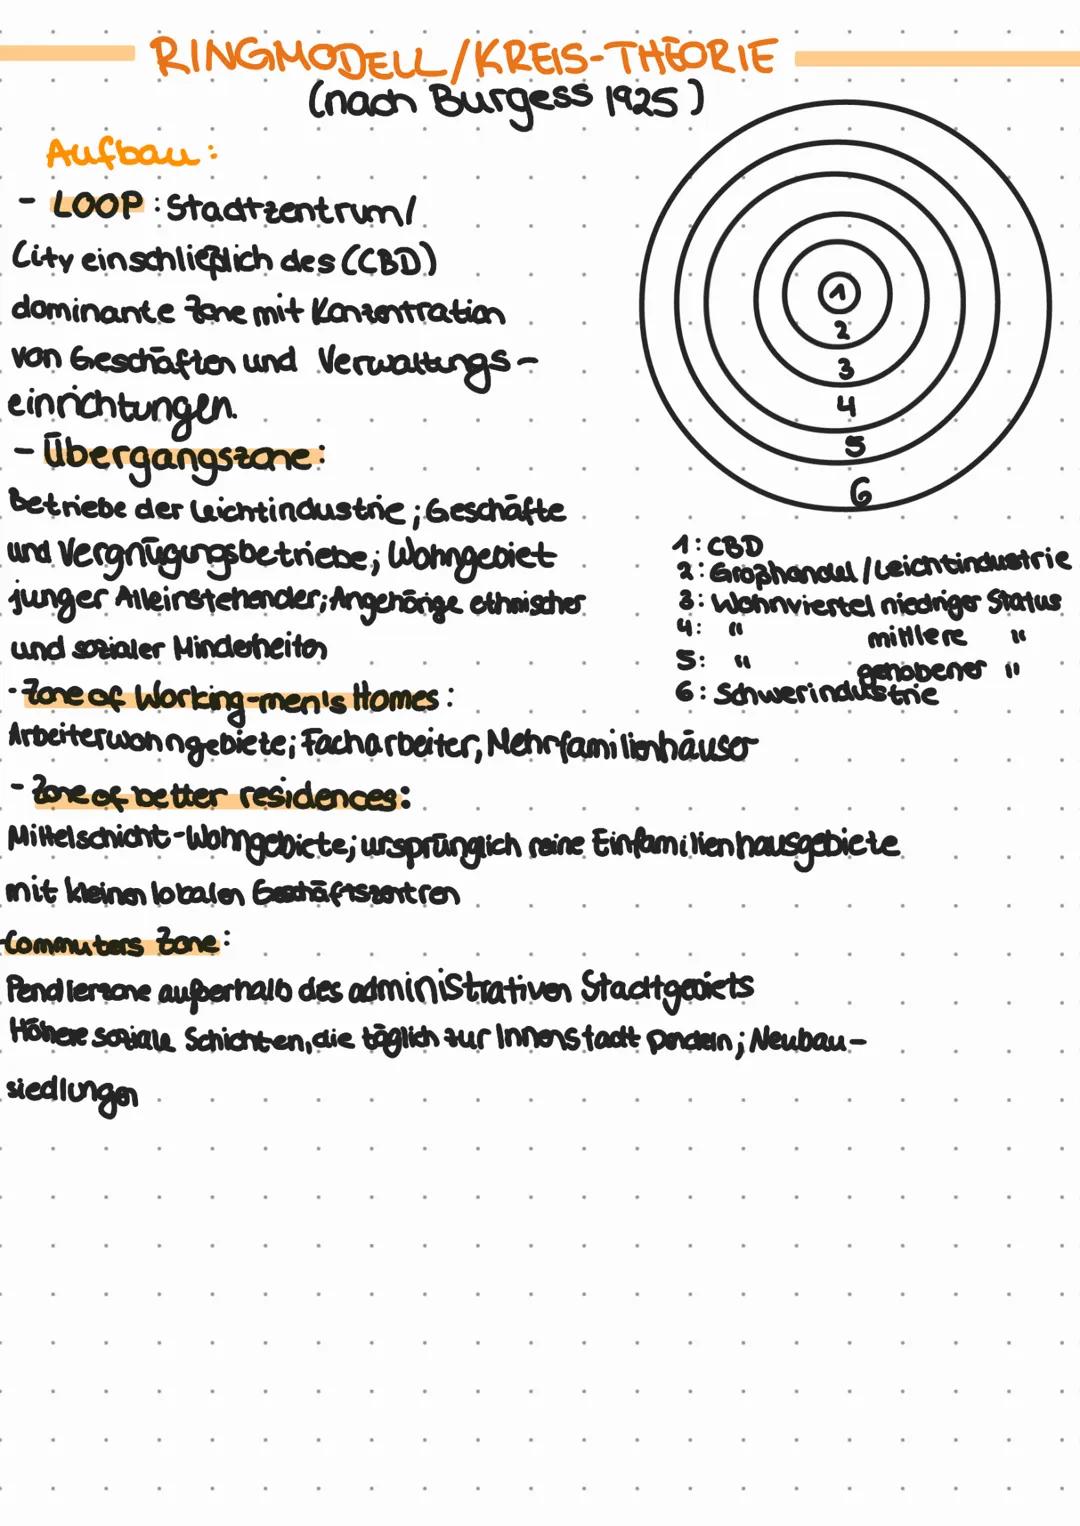 RINGMODELL/KREIS-THEORIE
(nach Burgess 1925)
Aufbau:
- LOOP: Stadtzentrum/
City einschließlich des (CBD)
dominante Zone mit Konzentration
von Geschäften und Verwaltungs-
einrichtungen.
- Übergangszone:
Betriebe der Leichtindustrie; Geschäfte
und Vergnügungsbetriebe; Wohngebiet
junger Alleinstehender; Angehörige ethnischer
und sozialer Minderheiten
- Zone of Working-men's Homes:
Arbeiterwohngebiete; Facharbeiter, Mehrfamilienhäuser
- Zone of better residences:
Mittelschicht-Wohngebiete; ursprünglich reine Einfamilienhausgebiete
mit kleinen lokalen Geschäftszentren
-Commuters Zone:
Pendlerzone außerhalb des administrativen Stadtgebiets
Höhere soziale Schichten, die täglich zur Innenstadt pendeln; Neubau-
siedlungen
1
2
3
4
5
6
1: CBD
2: Großhandel/Leichtindustrie
3: Wohnviertel niedriger Status
4: " mittlere "
5: " gehobener "
6: Schwerindustrie